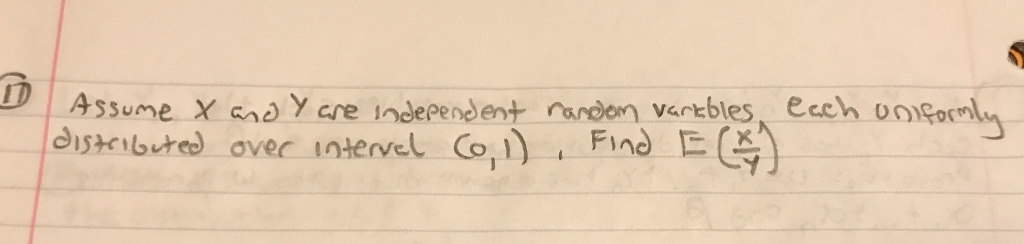 11 Assume X and Y are independent random varibles, each uniformly
distributed over interval (0,1), Find E(X/Y)